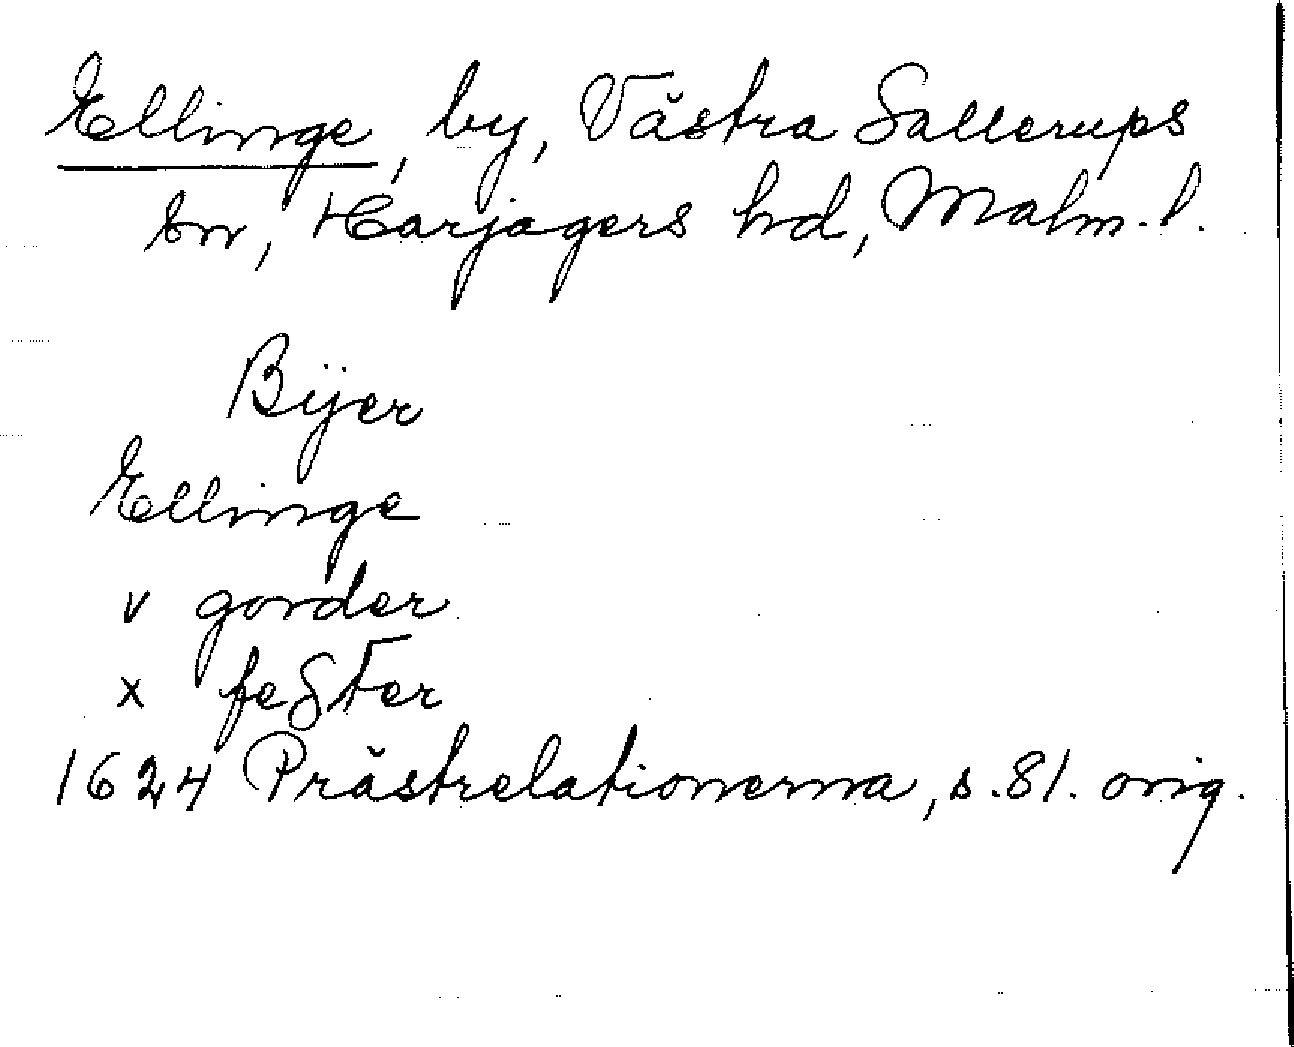 Ellinge, by, Västra Sallerups
sn, Harjagers hd, Malm. l.
Bÿer
Ellinge
v gorder
x fester
1624 Prästrelationerna, s. 81. orig.